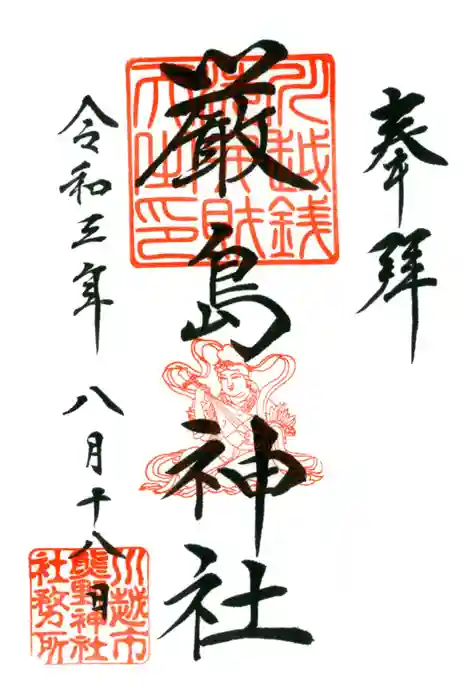 奉拝
川越銭
洗弁財
天之印
厳島神社
令和三年 八月十八日
川越市
熊野神社
社務所